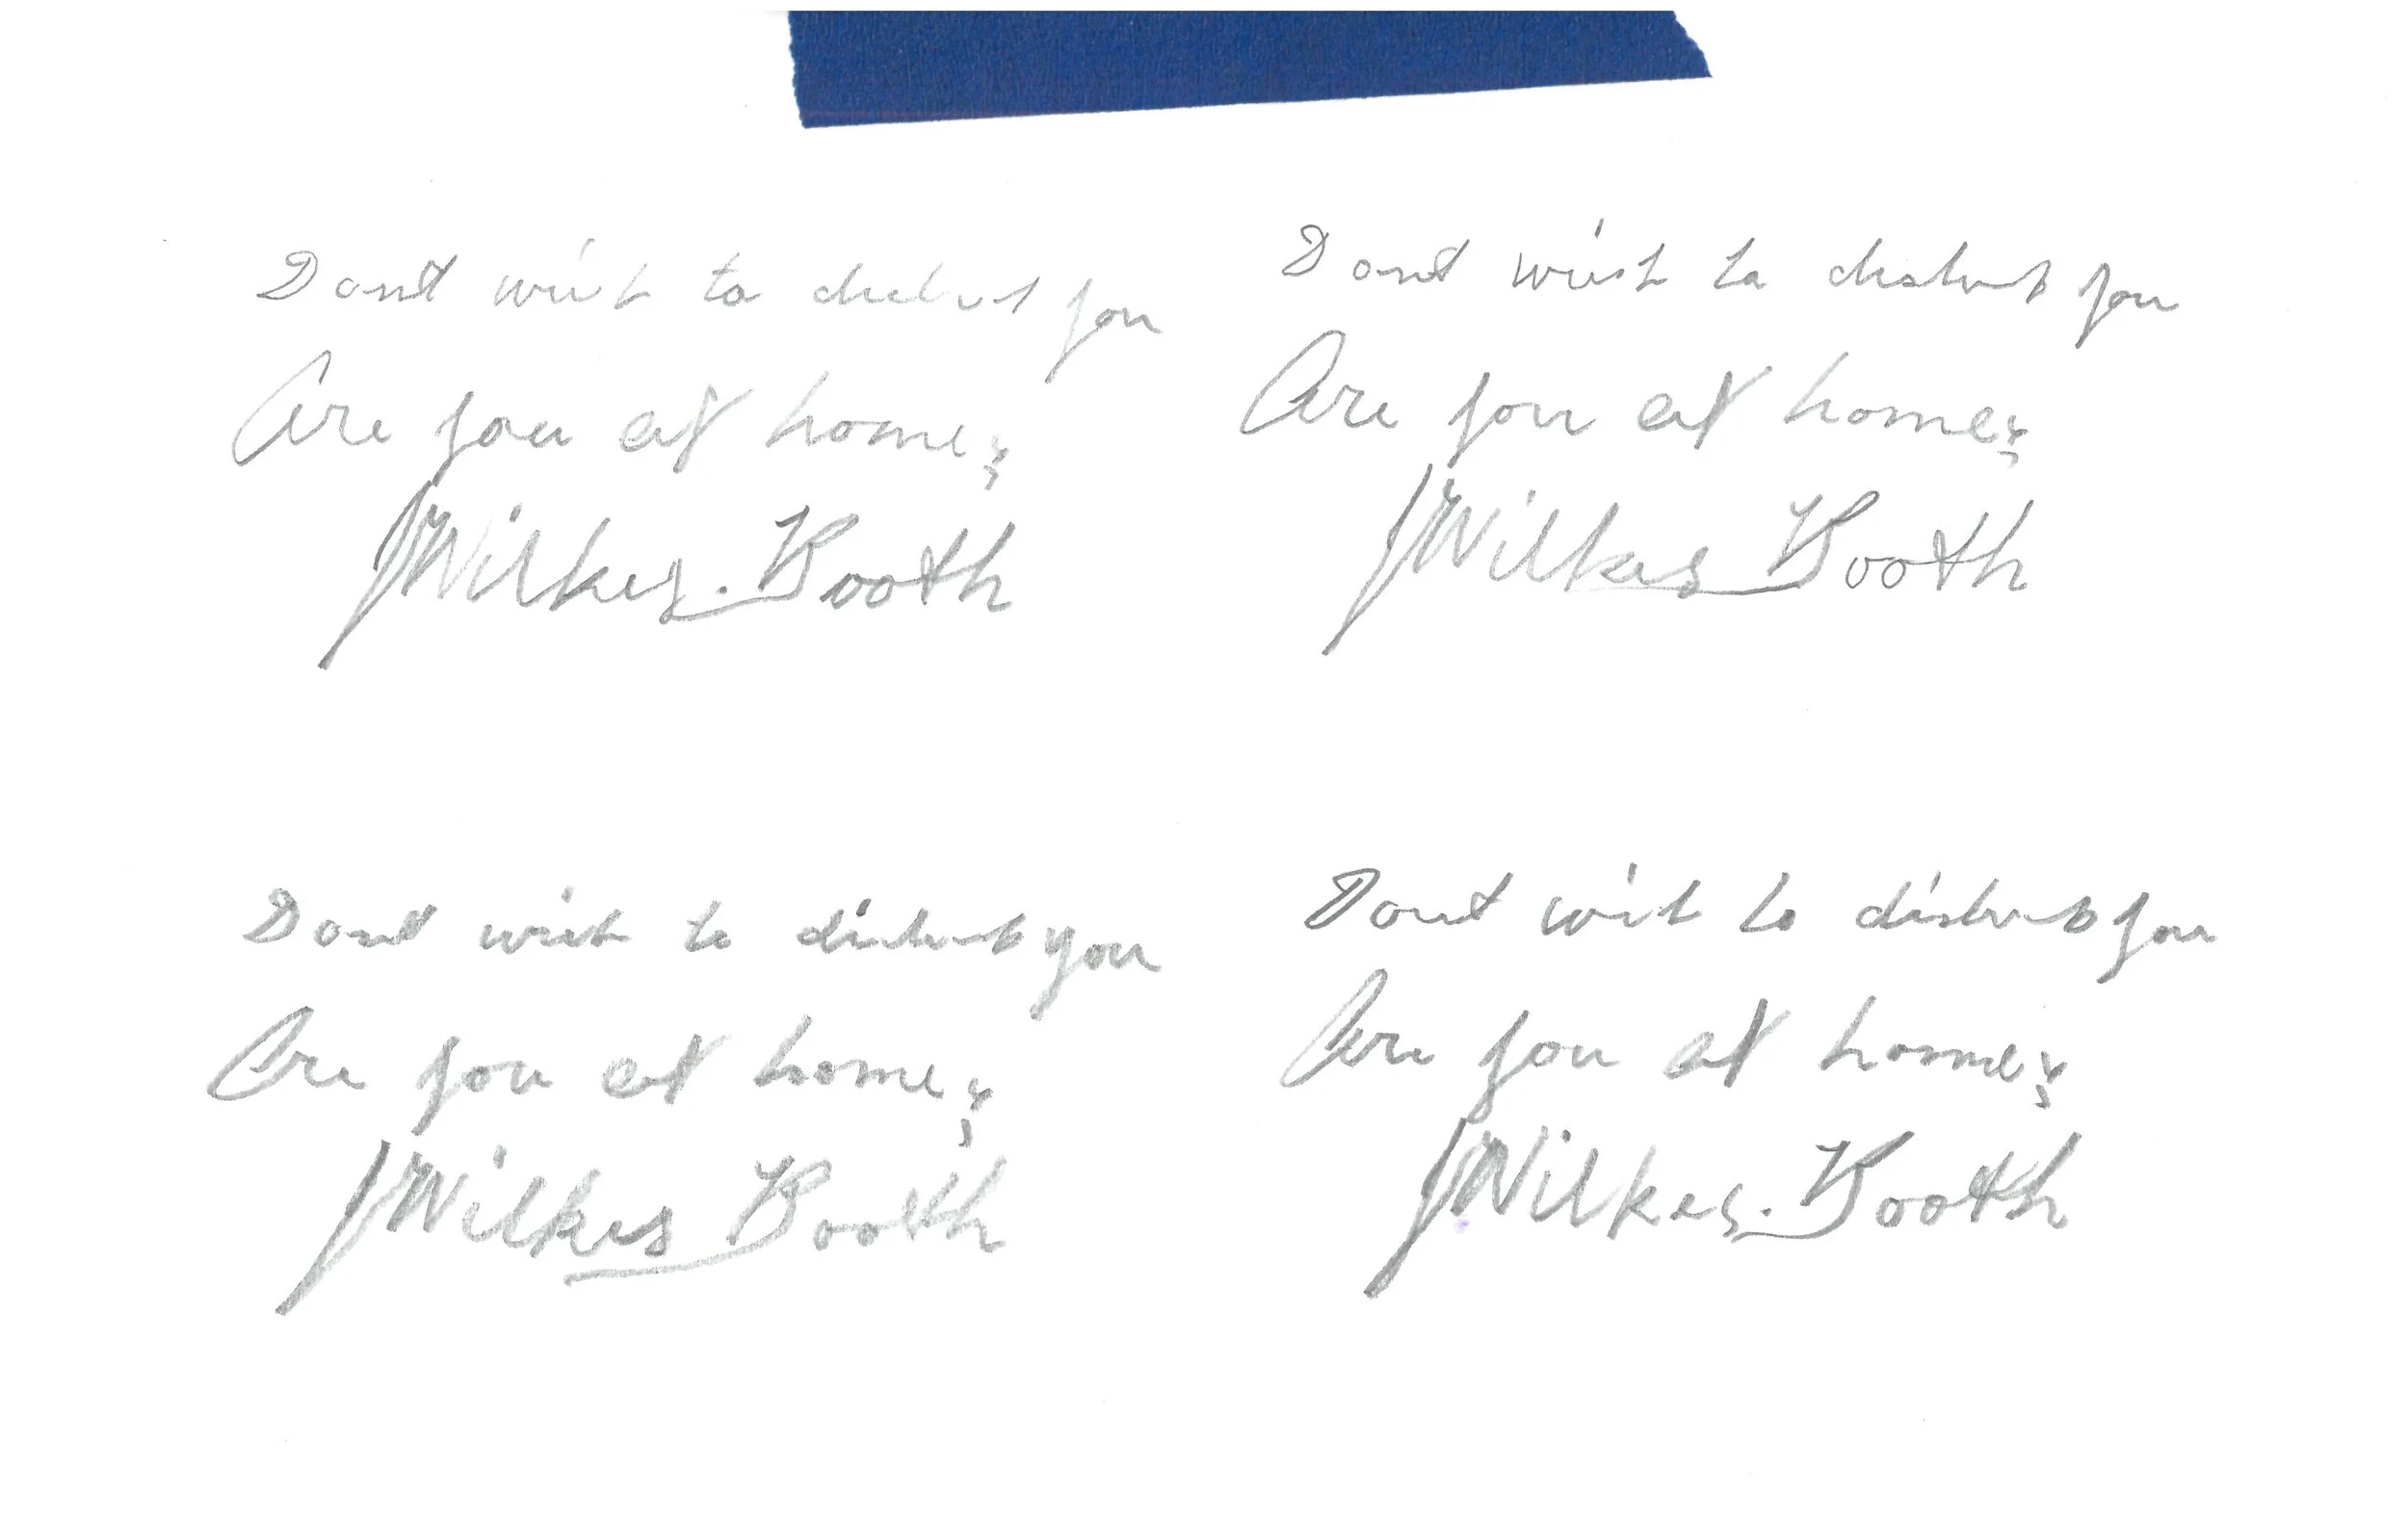 Dont wish to disturb you
Are you at home?
J Wilkes. Booth
Dont wish to disturb you
Are you at home?
J Wilkes Booth
Dont wish to disturb you
Are you at home?
J Wilkes Booth
Dont wish to disturb you
Are you at home?
J Wilkes. Booth